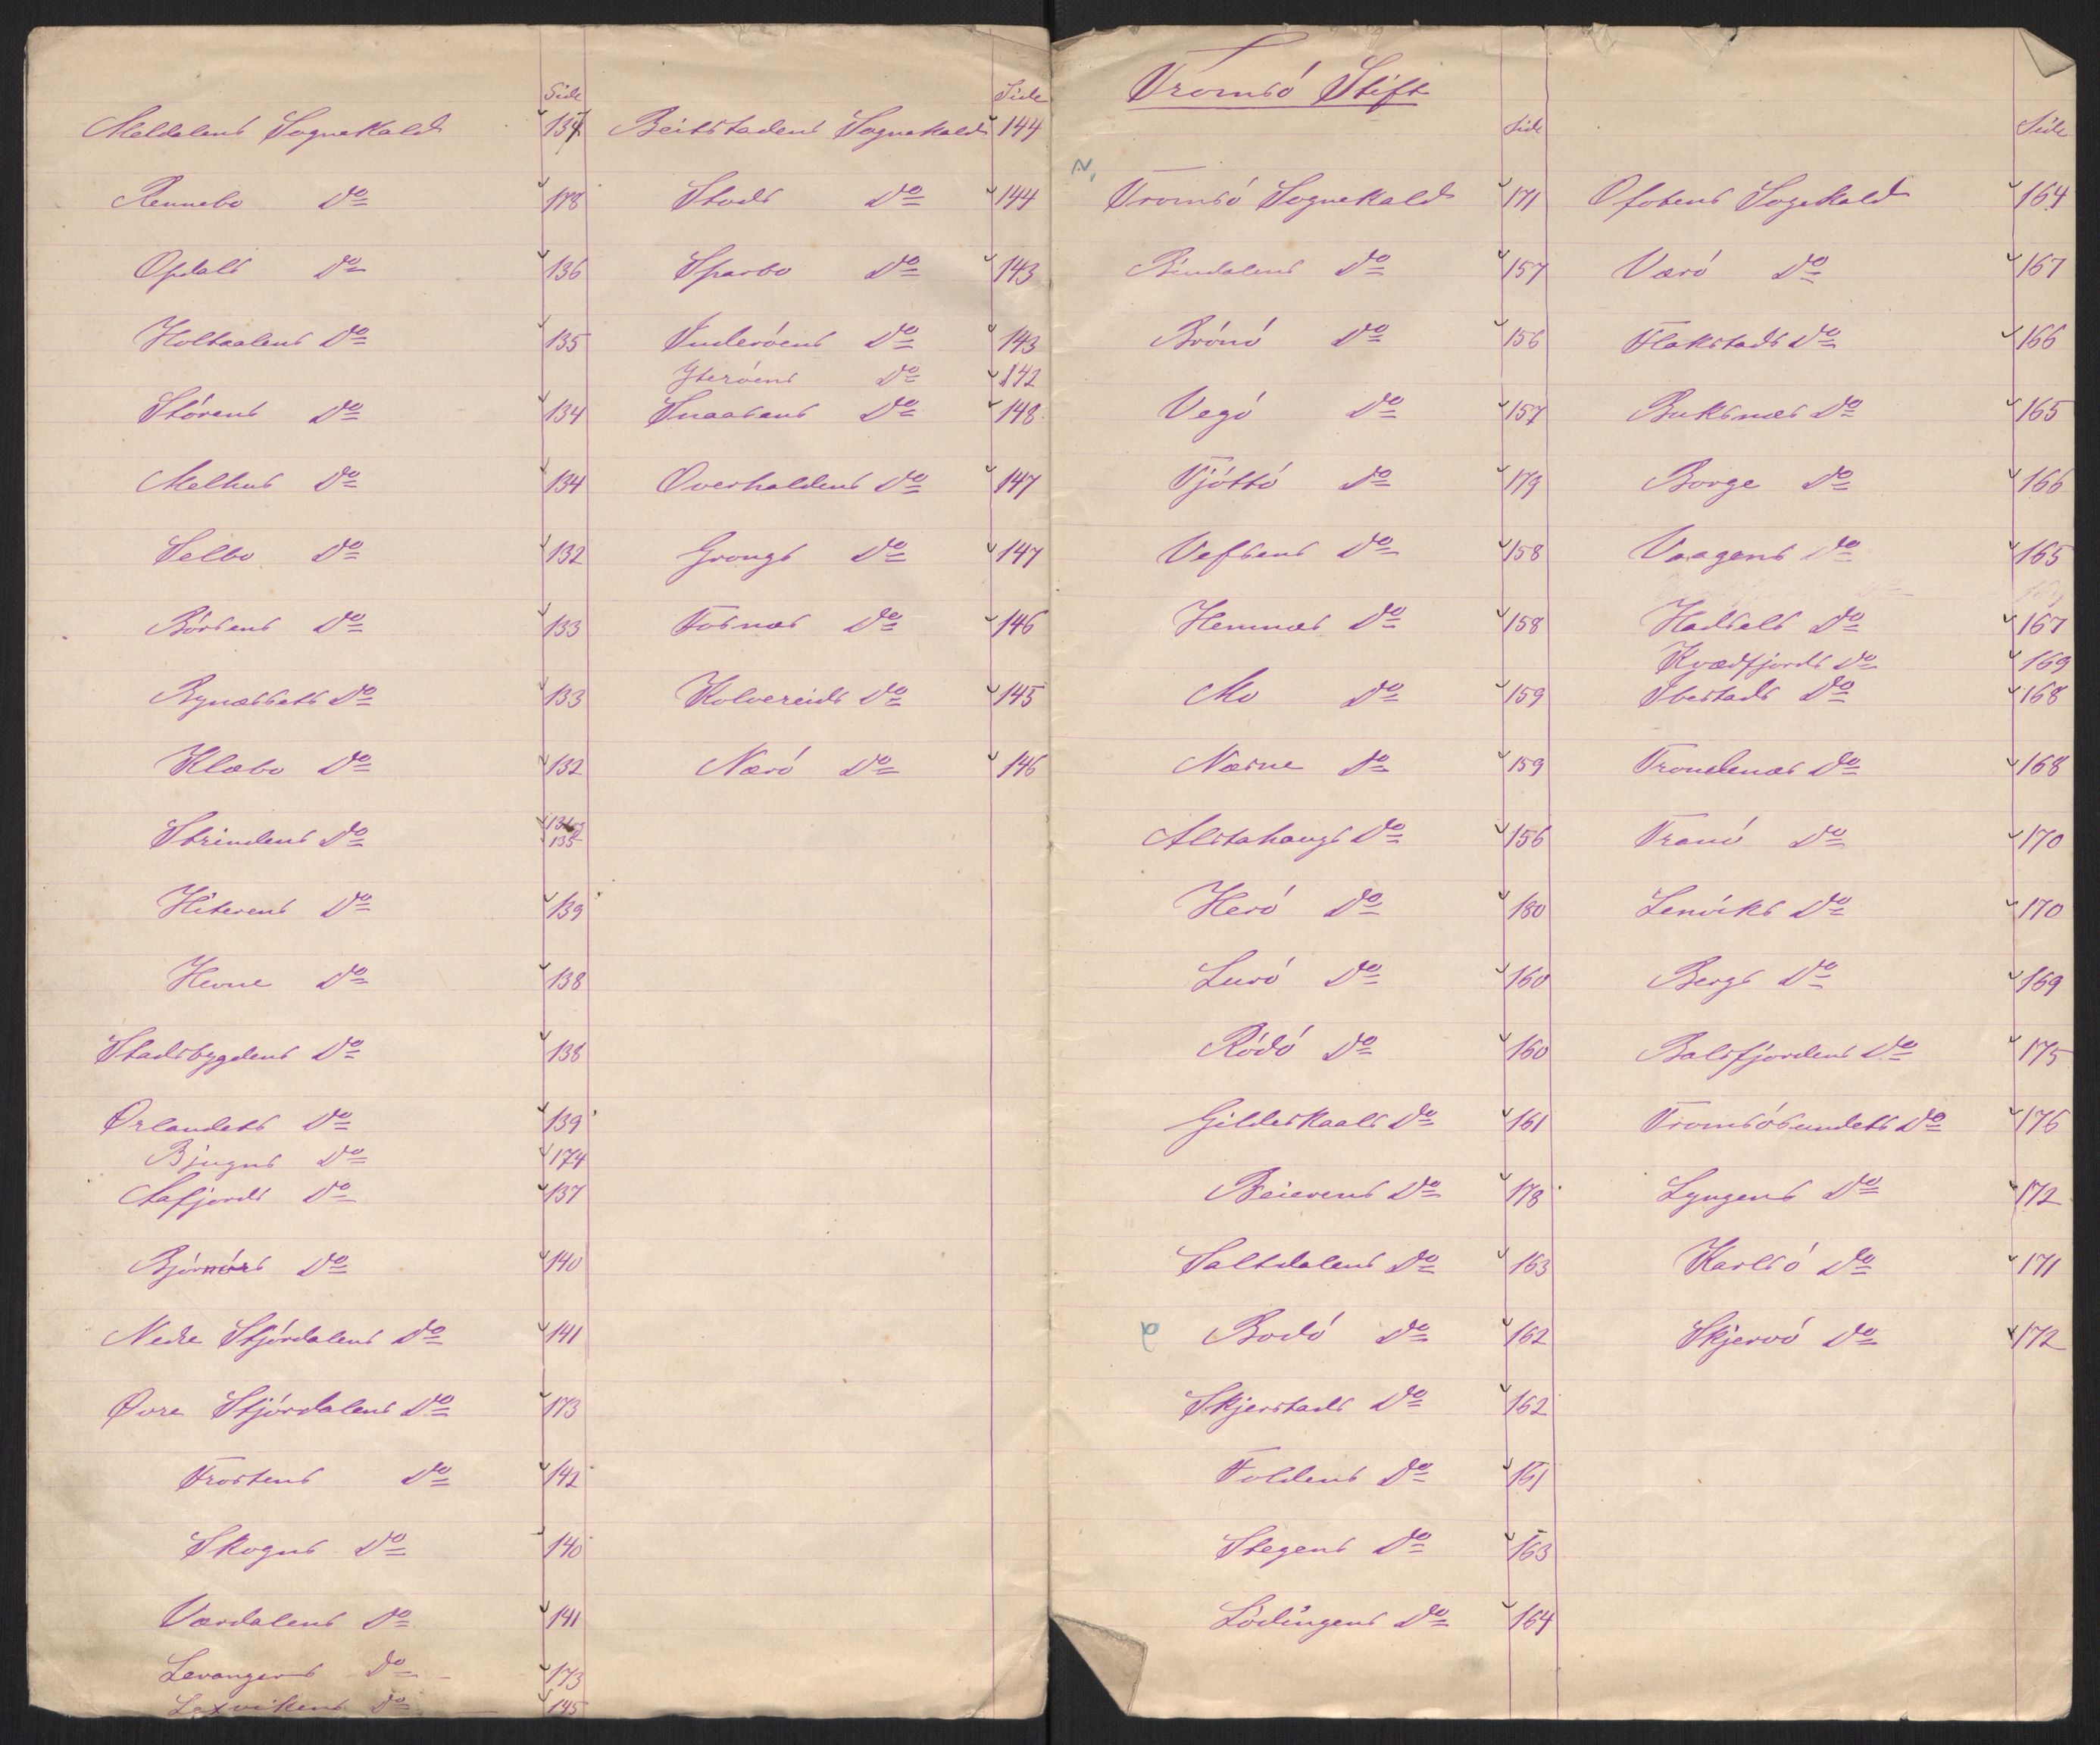 Side
Meldalens Sognekald 137
Rennebo Do 178
Opdals Do 136
Holtaalens Do 135
Störens Do 134
Melhus Do 134
Selbo Do 132
Börsens Do 133
Bynæssets Do 133
Klæbo Do 132
Strindens Do 131 og 135
Hiterens Do 139
Hevne Do 138
Stadsbygdens Do 138
Ørlandets Do 139
Bjugns Do 174
Aafjords Do 137
Björnörs Do 140
Nedre Stjördalens Do 141
Øvre Stjördalens Do 173
Frostens Do 142
Skogns Do 140
Værdalens Do 141
Levangers Do 173
Lexvikens Do 145
Side
Beitstadens Sognekald 144
Stods Do 144
Sparbo Do 143
Inderöens Do 143
Yteröens Do 142
Snaasens Do 148
Overhaldens Do 147
Grongs Do 147
Fosnæs Do 146
Kolvereids Do 145
Nærö Do 146
Tromsö Stift
Side
Tromsö Sognekald 171
Bindalens Do 157
Brönö Do 156
Vegö Do 157
Tjöttö Do 179
Vefsens Do 158
Hemnæs Do 158
Mo Do 159
Næsne Do 159
Alstahaugs Do 156
Herö Do 180
Lurö Do 160
Rödö Do 160
Gildeskaals Do 161
Beierens Do 178
Saltdalens Do 163
Bodö Do 162
Skjerstads Do 162
Foldens Do 161
Stegens Do 163
Lödingens Do 164
Side
Ofotens Sogekald 164
Værö Do 167
Flakstads Do 166
Buksnæs Do 165
Borge Do 166
Vaagens Do 165
Hadsels Do 167
Kvædfjords Do 169
Ibestads Do 168
Trondenæs Do 168
Tranö Do 170
Lenviks Do 170
Bergs Do 169
Balsfjordens Do 175
Tromsösundets Do 176
Lyngens Do 172
Karlsö Do 171
Skjervö Do 172